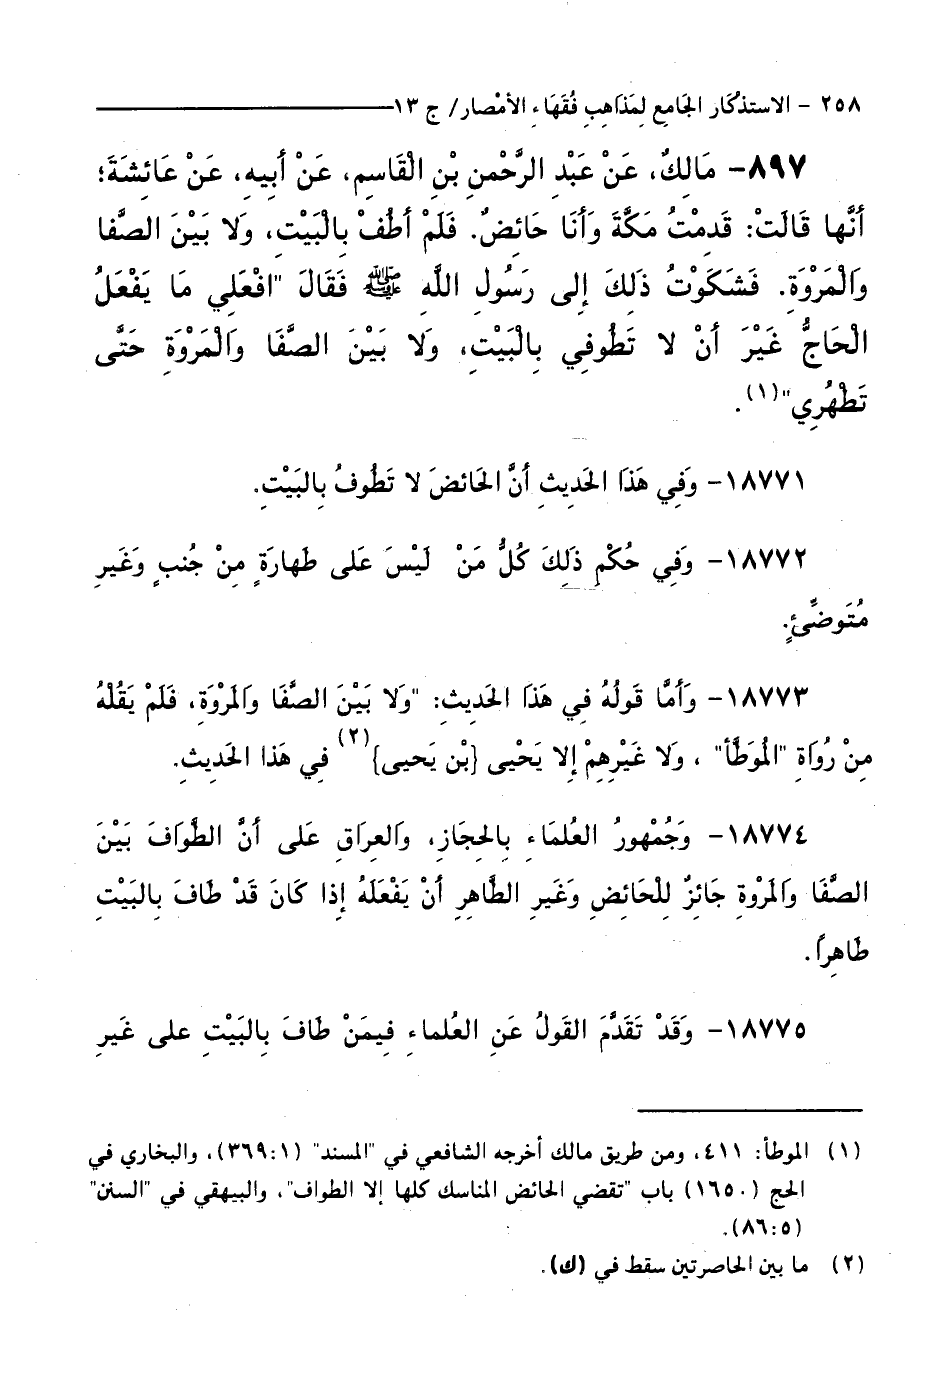 ٢٥٨ - الاستذْكَار الجَامع لمَذاهب فُقَهَاء الأمْصار/ ج ١٣
٨٩٧- مَالكٌ، عَنْ عَبْدِ الرَّحْمنِ بْنِ الْقَاسِمِ، عَنْ أَبِيهِ، عَنْ عَائِشَةَ؛
أَنَّها قَالَتْ: قَدِمْتُ مَكَّةَ وَأَنَا حَائِضٌ. فَلَمْ أَطُفْ بِالْبَيْتِ، وَلا بَيْنَ الصَّفا
وَالْمَرْوَةِ. فَشَكَوْتُ ذَلِكَ إِلى رَسُولِ اللَّهِ ﷺ فَقَالَ "افْعَلِي مَا يَفْعَلُ
الْحَاجُّ غَيْرَ أَنْ لا تَطُوفِي بِالْبَيْتِ، وَلا بَيْنَ الصَّفَا وَالْمَرْوَةِ حَتَّى
تَطْهُرِي"(١).
١٨٧٧١- وَفِي هَذَا الحَدِيثِ أَنَّ الحَائضَ لا تَطُوفُ بِالبَيْتِ.
١٨٧٧٢- وَفِي حُكْمِ ذَلِكَ كُلُّ مَنْ لَيْسَ عَلى طَهارَةٍ مِنْ جُنبٍ وَغَيرِ
مُتَوضِّئٍ.
١٨٧٧٣- وَأَمَّا قَولُهُ فِي هَذَا الحَدِيثِ: "وَلا بَيْنَ الصَّفَا وَالمَرْوَةِ، فَلَمْ يَقُلْهُ
مِنْ رُوَاةِ "المُوَطَّأ" ، وَلا غَيْرِهِمْ إِلا يَحْيى {بْن يَحيى}(٢) فِي هَذا الحَدِيثِ.
١٨٧٧٤- وَجُمْهورُ العُلمَاءِ بِالحِجَازِ، وَالعِراقِ عَلى أَنَّ الطَّوَافَ بَيْنَ
الصَّفَا وَالمَرْوةِ جَائِزٌ لِلْحَائِضِ وَغَيرِ الطَّاهِرِ أَنْ يَفْعَلَهُ إِذا كَانَ قَدْ طَافَ بِالبَيْتِ
طَاهِراً.
١٨٧٧٥- وَقَدْ تَقَدَّمَ القَولُ عَنِ العُلماءِ فِيمَنْ طَافَ بِالبَيْتِ على غَيرِ
(١) الموطأ: ٤١١، ومن طريق مالك أخرجه الشافعي في "المسند" (٣٦٩:١)، والبخاري في
الحج (١٦٥٠) باب "تقضي الحائض المناسك كلها إلا الطواف"، والبيهقي في "السنن"
(٨٦:٥).
(٢) ما بين الحاصرتين سقط في (ك).